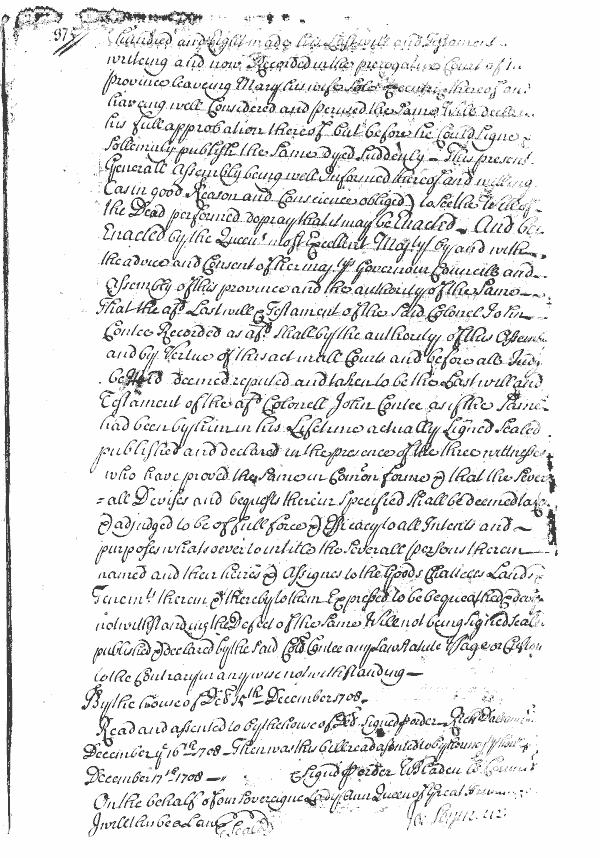 975
hundred and Eight made his Last will and Testament
writing and now Recorded in the prerogative Court of
Province leaveing Mary his wife Sole Executrix thereof and
haveing well Considered and perused the Same
his full approbation thereof but before he Could Signe
Sollemnly publish the Same dyed Suddenly This present
Generall Assembly being well Informed thereof and willing
(as in good Reason and Conscience obliged) to See the Will of
the Dead performed do pray that it may be Enacted And be
Enacted by the Queens most Excellent Majty by and with
the advice and Consent of her majtys Governour Councill and
Assembly of this province and the authority of the Same
That the afd Last will & Testament of the Said Colonel John
Contee Recorded as afd Shall by the authority of this
and by Vertue of this act in all Courts and before all
be deemed reputed and taken to be the Last will and
Testament of the afd Colonell John Contee as if the Same
had been by him in his Lifetime actually Signed Sealed
published and declared in the presence of the three wittnesses
who have proved the Same in Comon forme & that the Sever
=all Devises and bequests therein Specified Shall be deemed
& adjudged to be of full force & Efficacy to all Intents and
purposes whatsoever to intitle the Severall persons therein
named and their heires & Assignes to the Goods Chattles Lands
Tenemts therein & thereby to them Expressed to be bequeathed
notwithstanding the Defect of the Same Will not being Signed
published & declared by the Said Collo Contee any Law Statute Usage or Custom
to the Contrary in any wise notwithstanding
By the house of Del December 1708.
Read and assented to by the house of Del Signed p order Rich
December ye 16th 1708 Then was this bill read assented to by
December 17th 1708 Signed p order W Bladen
On the behalf of our Sovereigne Lady Ann Queen of Great
I will this be a Law Sealed